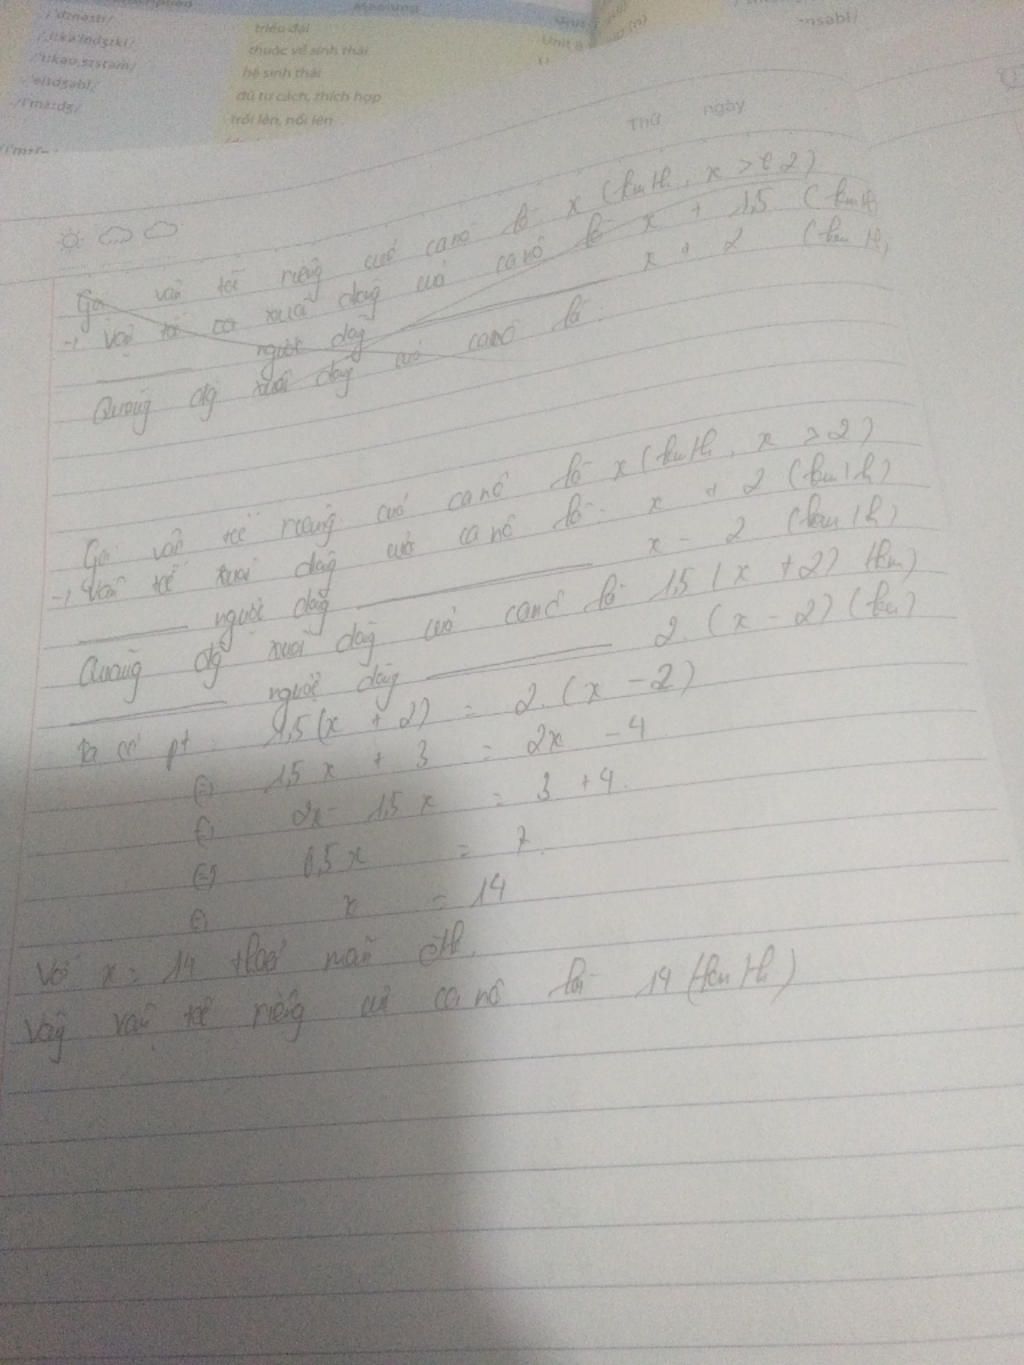 Meaning
/ˈdɪnəsti/
triều đại
thuộc về sinh thái
hệ sinh thái
đủ tư cách, thích hợp
trồi lên, nổi lên
Unit 8
(n)
Thứ ngày
Gọi vận tốc riêng của canô là x (km/h, x > 2)
→ Vận tốc xuôi dòng của canô là x + 1,5 (km/h)
ngược dòng x + 2 (km/h)
Quãng đg xuôi dòng của canô là:
Gọi vận tốc riêng của canô là x (km/h, x > 2)
→ Vận tốc xuôi dòng của canô là: x + 2 (km/h)
ngược dòng x - 2 (km/h)
Quãng đg xuôi dòng của canô là 1,5 (x + 2) (km)
ngược dòng 2. (x - 2) (km)
Ta có pt: 1,5 (x + 2) = 2. (x - 2)
(=) 1,5 x + 3 = 2x - 4
(=) 2x - 1,5 x = 3 + 4.
(=) 0,5 x = 7.
(=) x = 14
Với x = 14 thoả mãn đk.
Vậy vận tốc riêng của canô là 14 (km/h)